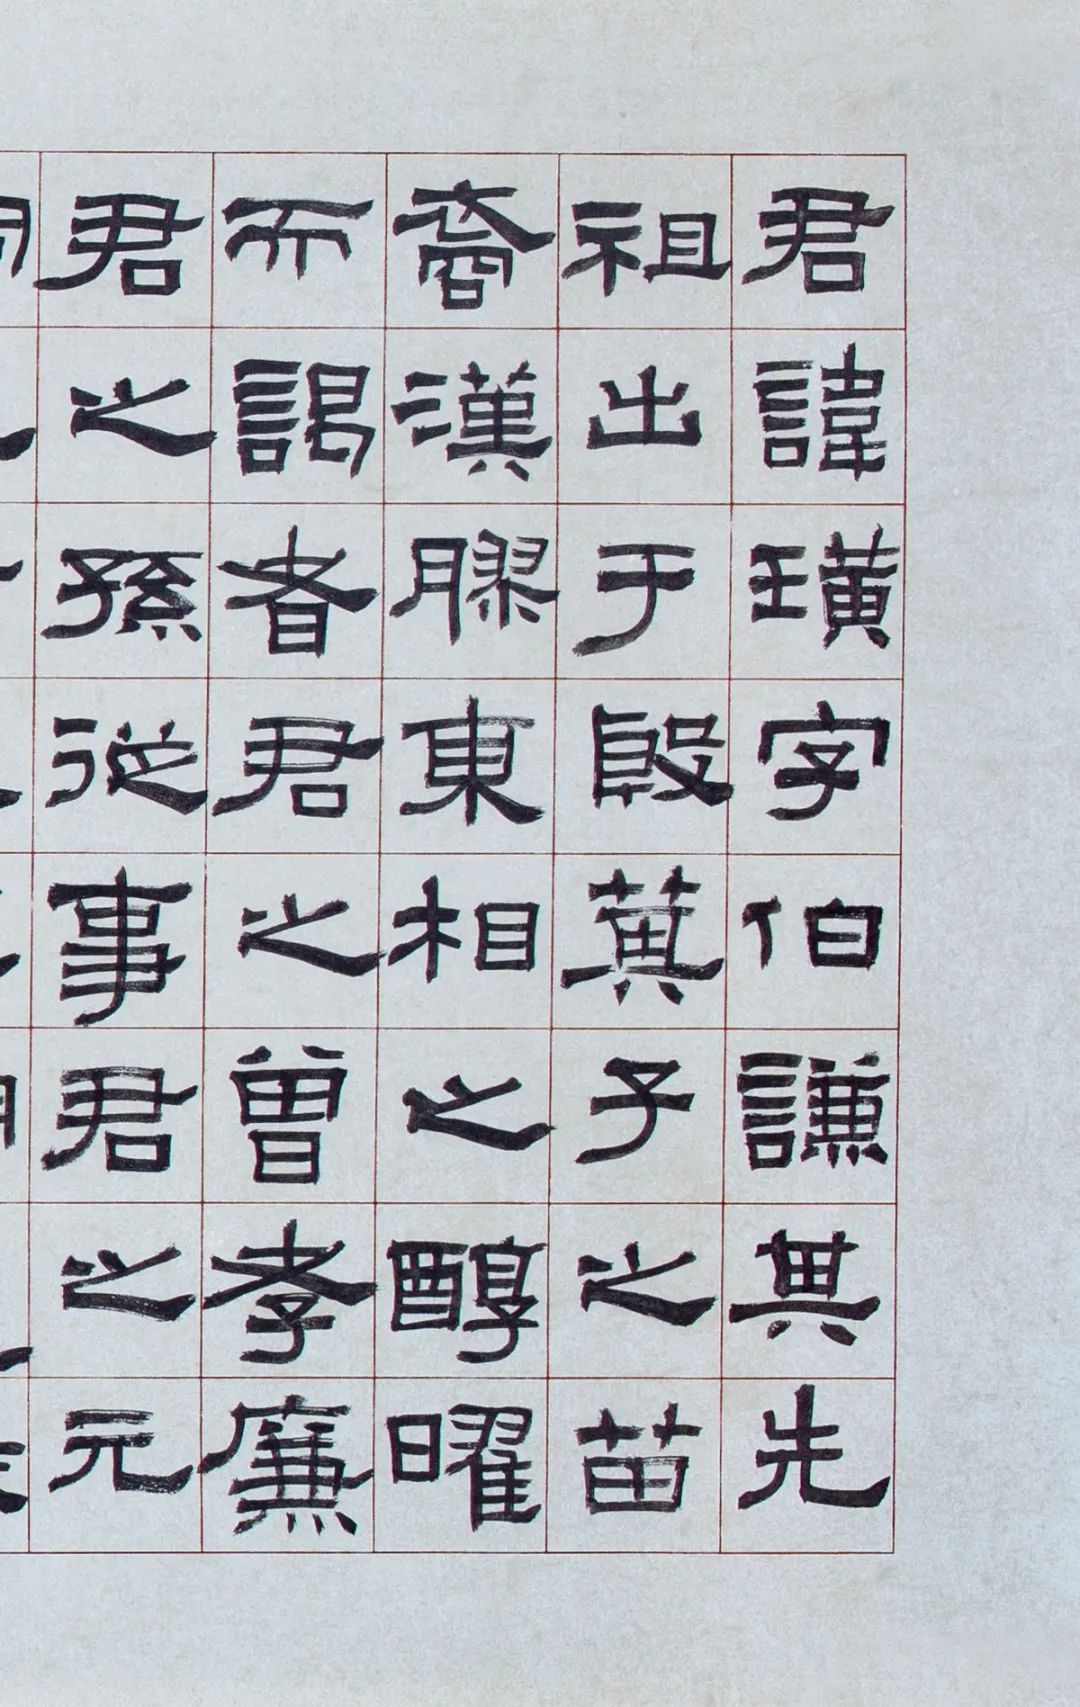 君諱璜字伯謙其先
祖出于殷萁子之苗
裔漢膠東相之醇曜
而謁者君之曾孝廉
君之孫從事君之元